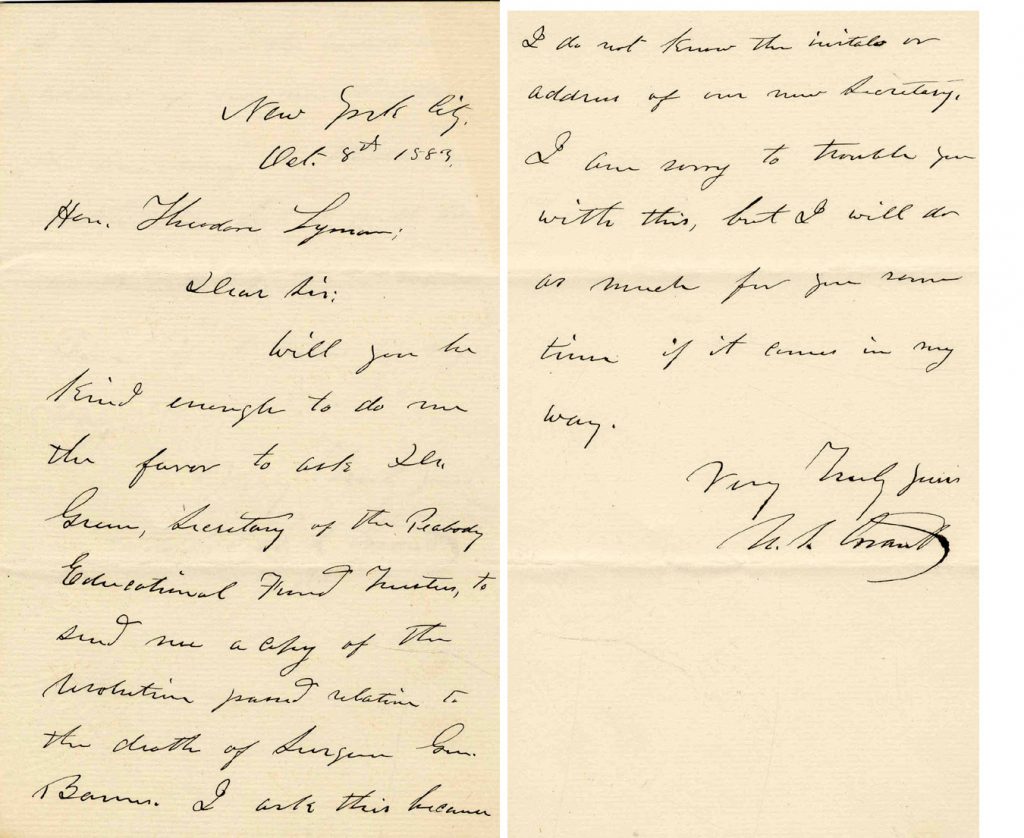 New York City,
Oct. 8th 1883,
Hon. Theodore Lyman;
Dear Sir:
Will you be
kind enough to do me
the favor to ask Dr.
Green, Secretary of the Peabody
Educational Fund Trustees, to
send me a copy of the
resolution passed relative to
the death of Surgeon Gen.
Barnes. I ask this because
I do not know the initals or
address of our new Secretary.
I am sorry to trouble you
with this, but I will do
as much for you some
time if it comes in my
way.
Very Truly yours
U. S. Grant